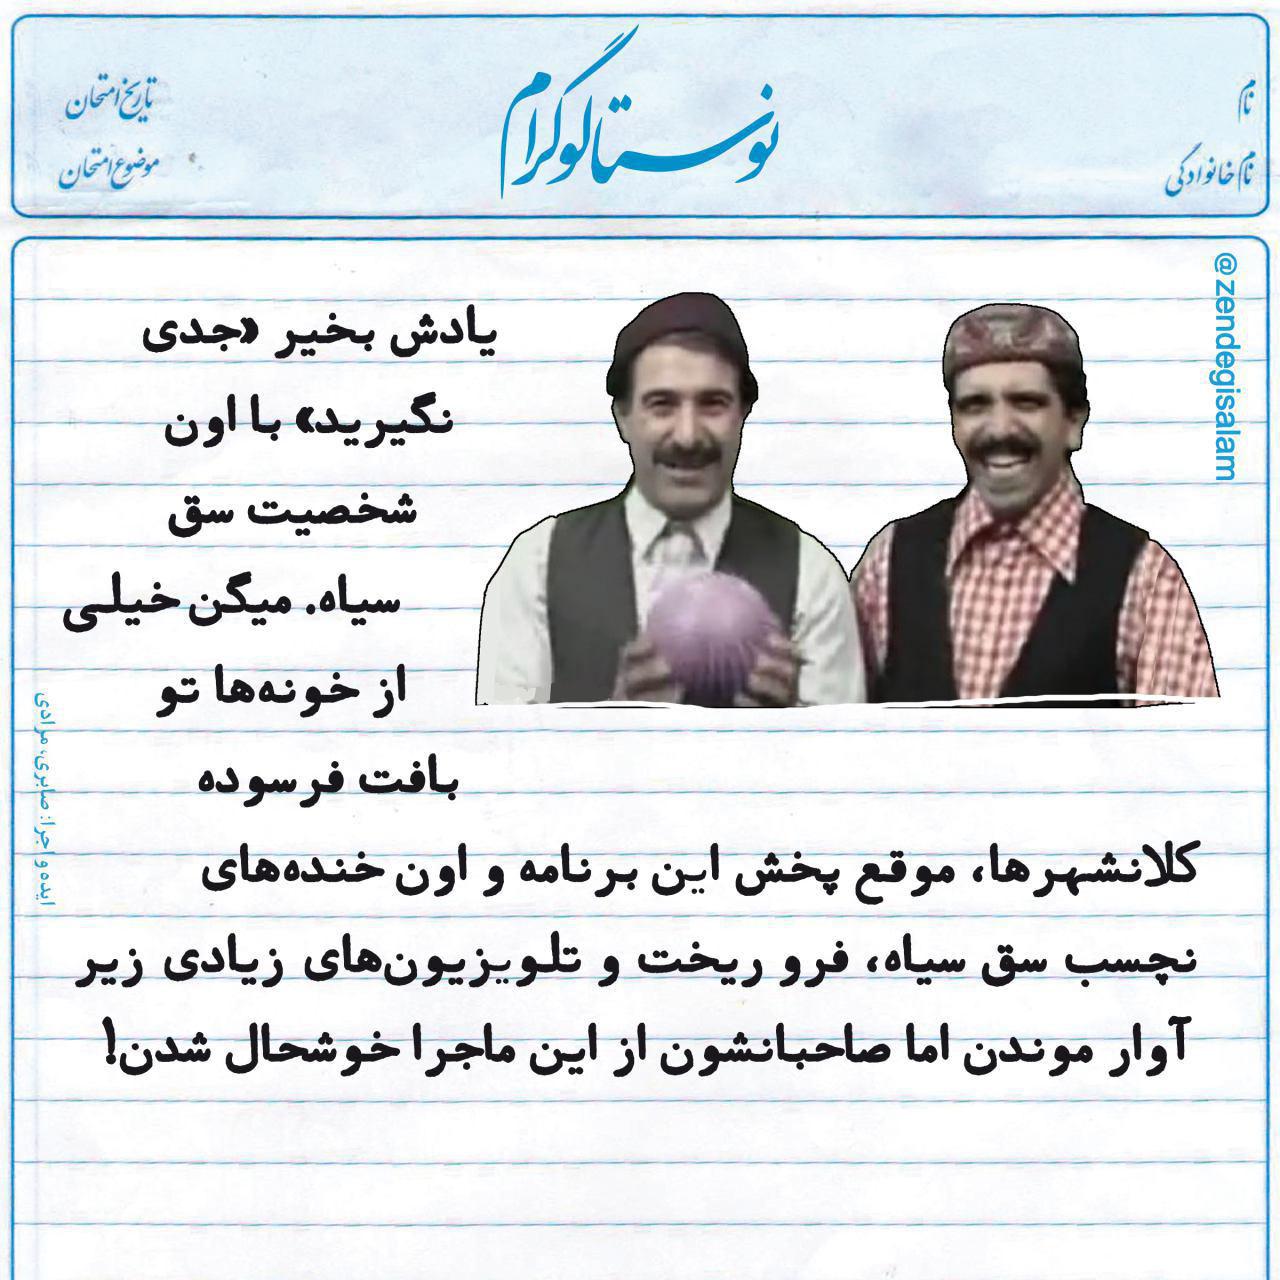 نام
نام خانوادگی
نوستالوگرام
تاریخ امتحان
موضوع امتحان
@zendegisalam
یادش بخیر «جدی
نگیرید» با اون
شخصیت سق
سیاه. میگن خیلی
از خونه‌ها تو
بافت فرسوده
کلانشهرها، موقع پخش این برنامه و اون خنده‌های
نچسب سق سیاه، فرو ریخت و تلویزیون‌های زیادی زیر
آوار موندن اما صاحبانشون از این ماجرا خوشحال شدن!
ایده و اجرا: صابری، مرادی